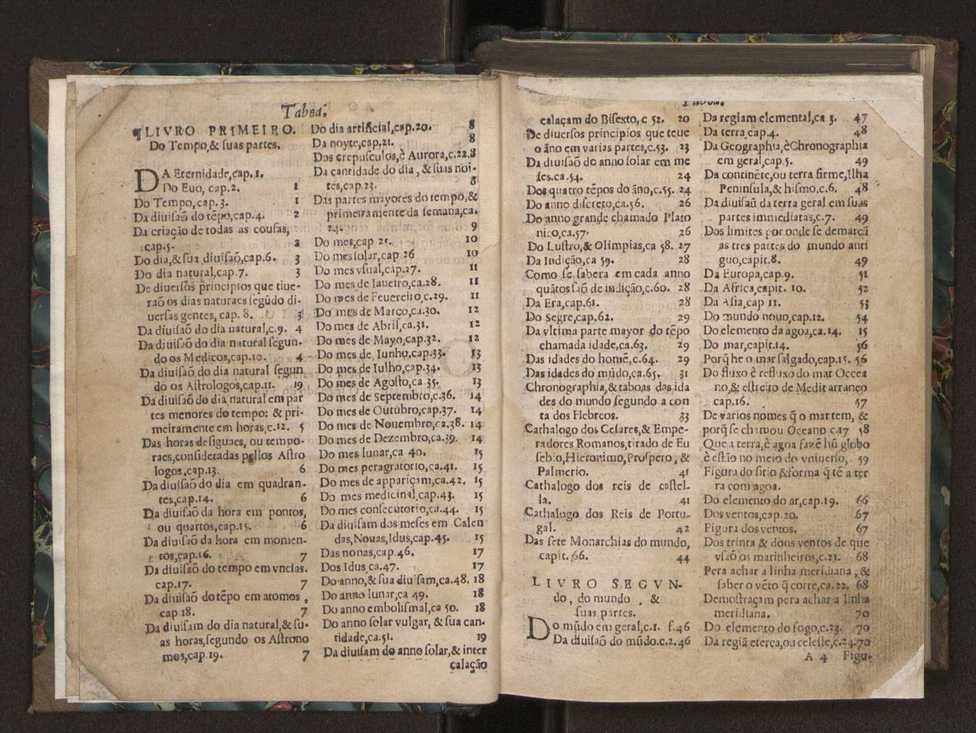 Taboa.
¶ LIVRO PRIMEIRO.
Do Tempo, & suas partes.
DA Eternidade, cap. 1.
Do Euo, cap. 2. 1
Do Tempo, cap. 3. 1
Da diuisaõ do tẽpo, cap. 4. 2
Da criação de todas as cousas,
cap. 5. 2
Do dia, & sua diuisaõ, cap. 6. 3
Do dia natural, cap. 7. 3
De diuersos principios que tiue-
raõ os dias naturaes segũdo di-
uersas gentes, cap. 8. 3
Da diuisaõ do dia natural, c. 9. 4
Da diuisaõ do dia natural segun-
do os Medicos, cap. 10. 4
Da diuisaõ do dia natural segun
do os Astrologos, cap. 11. 19
Da diuisaõ do dia natural em par
tes menores do tempo: & pri-
meiramente em horas, c. 12. 5
Das horas desiguaes, ou tempo-
raes, consideradas pellos Astro
logos, cap. 13. 6
Da diuisaõ do dia em quadran-
tes, cap. 14. 6
Da diuisaõ da hora em pontos,
ou quartos, cap. 15. 6
Da diuisaõ da hora em momen-
tos, cap. 16. 7
Da diuisaõ do tempo em vncias.
cap. 17. 7
Da diuisaõ do tẽpo em atomos,
cap 18. 7
Da diuisam do dia natural, & su-
as horas, segundo os Astrono
mos, cap. 19. 7
Do dia artificial, cap. 20. 8
Da noyte, cap. 21. 8
Dos crepusculos, è Aurora, c. 22. 8
Da cantidade do dia, & suas noi-
tes, cap. 23. 8
Das partes mayores do tempo, &
primeiramente da semana, ca.
24. 9
Do mes, cap 25. 10
Do mes solar, cap 26 10
Do mes vsual, cap. 27. 11
Do mes de Ianeiro, ca. 28. 11
Do mes de Feuereiro, c. 29. 11
Do mes de Março, ca. 30. 12
Do mes de Abril, ca. 31. 12
Do mes de Mayo, cap. 32. 12
Do mes de Iunho, cap. 33. 13
Do mes de Iulho, cap. 34. 13
Do mes de Agosto, ca 35. 13
Do mes de Septembro, c. 36. 14
Do mes de Outubro, cap. 37. 14
Do mes de Nouembro, ca. 38. 14
Do mes de Dezembro, ca. 39. 14
Do mes lunar, ca 40. 15
Do mes peragratorio, ca. 41. 15
Do mes de appariçim, ca. 42. 15
Do mes medicinal, cap. 43. 15
Do mes consecutorio, ca. 44. 15
Da diuisam dos meses em Calen
das, Nonas, Idus, cap. 45. 15
Das nonas, cap. 46. 17
Dos Idus ca. 47. 17
Do anno, & sua diuisam, ca. 48. 18
Do anno lunar, ca 49. 18
Do anno embolismal, ca 50. 18
Do anno solar vulgar, & sua can-
tidade, ca. 51. 19
Da diuisam do anno solar, & inter
calação
calaçam do Bisexto, c 52. 20
De diuersos principios que teue
o áno em varias partes, c. 53. 23
Da diuisaõ do anno solar em me
ses. ca. 54. 24
Dos quatro tẽpos do áno, c. 55. 24
Do anno discreto, ca. 56. 26
Do anno grande chamado Plato
nico, ca. 57. 26
Do Lustro, & Olimpias, ca 58. 27
Da Indição, ca 59. 28
Como se sabera em cada anno
quãtos saõ de indição, c. 60. 28
Da Era, cap. 61. 28
Do Segre, cap. 62. 29
Da vltima parte mayor do tẽpo
chamada idade, ca. 63. 29
Das idades do homẽ, c. 64. 29
Das idades do mũdo, ca. 65. 31
Chronographia, & taboas das ida
des do mundo segundo a con
ta dos Hebreos. 33
Cathalogo dos Cesares, & Empe-
radores Romanos, tirado de Eu
sebio, Hieronimo, Prospero, &
Palmerio. 41
Cathalogo dos reis de castel-
la. 41
Cathalogo dos Reis de Portu-
gal. 42
Das sete Monarchias do mundo,
capit. 66. 44
LIVRO SEGVN-
do, do mundo, &
suas partes.
DO mũdo em geral, c. 1. f. 46
Da diuisaõ do mũdo. c. 2. 46
Da regiam elemental, ca 3. 47
Da terra, cap. 4. 48
Da Geographia, è Chronographia
em geral, cap. 5. 49
Da continẽte, ou terra firme, Ilha
Peninsula, & hismo, c. 6. 48
Da diuisaõ da terra geral em suas
partes immediatas, c. 7. 49
Dos limites por onde se demarcã
as tres partes do mundo anti
guo, capit. 8. 49
Da Europa, cap. 9. 51
Da Africa, capit. 10. 52
Da Asia, cap 11. 53
Do mundo nouo, cap. 12. 54
Do elemento da agoa, ca. 14. 15
Do mar, capit. 14. 56
Porq̃ he o mar salgado, cap. 15. 56
Do fluxo è refluxo do mar Ocea
no, & estreito de Mediterraneo
cap. 16. 57
De varios nomes q̃ o mar tem, &
porq̃ se chamou Oceano c. 17 58
Que a terra, è agoa fazẽ hũ globo
è estão no meio do vniuerso, 59
Figura do sitio & forma q̃ tẽ a ter
ra com agoa.
Do elemento do ar, cap. 19. 66
Dos ventos, cap. 20. 67
Figura dos ventos. 67
Dos trinta & dous ventos de que
vsaõ os marinheiros, c. 21. 68
Pera achar a linha meridiana, &
saber o vẽto q̃ corre, ca. 22. 68
Demostraçam pera achar a linha
meridiana. 70
Do elemento do fogo, c. 23. 70
Da regiã eterea, ou celeste, c. 24. 70
A 4 Figu-